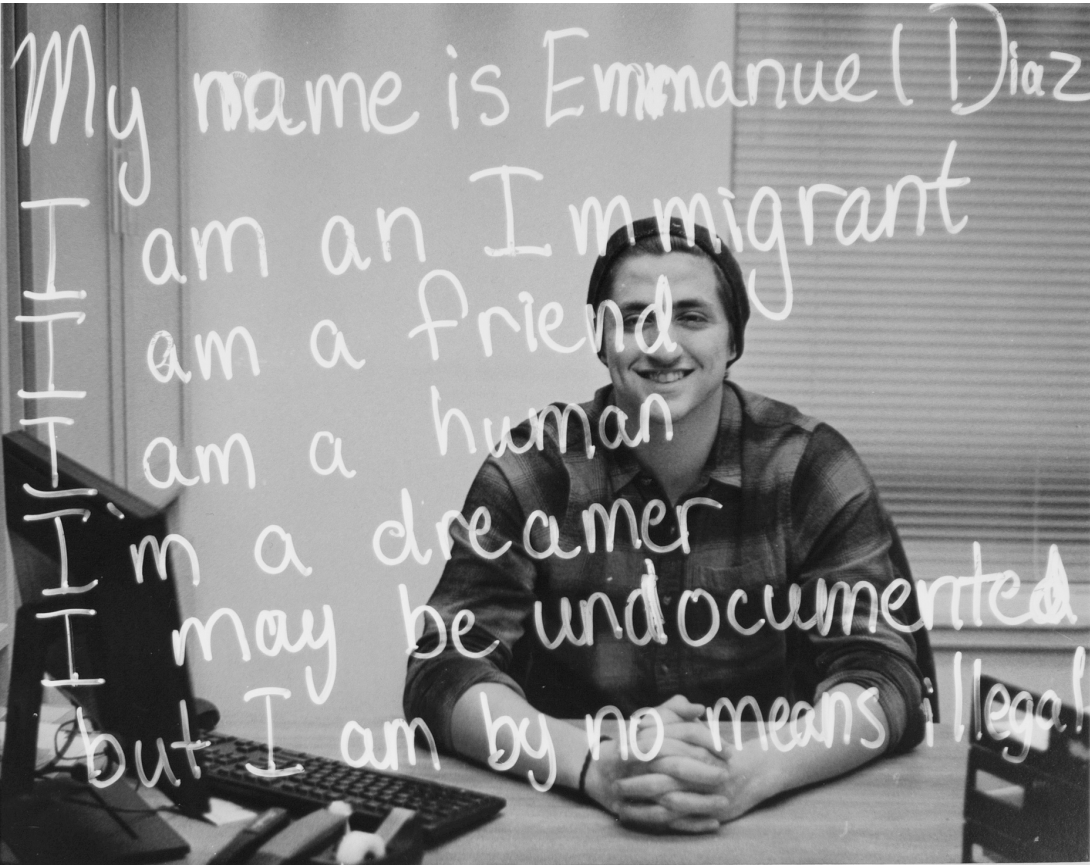 My name is Emmanuel Diaz
I am an Immigrant
I am a friend
I am a human
I'm a dreamer
I may be undocumented
but I am by no means illegal